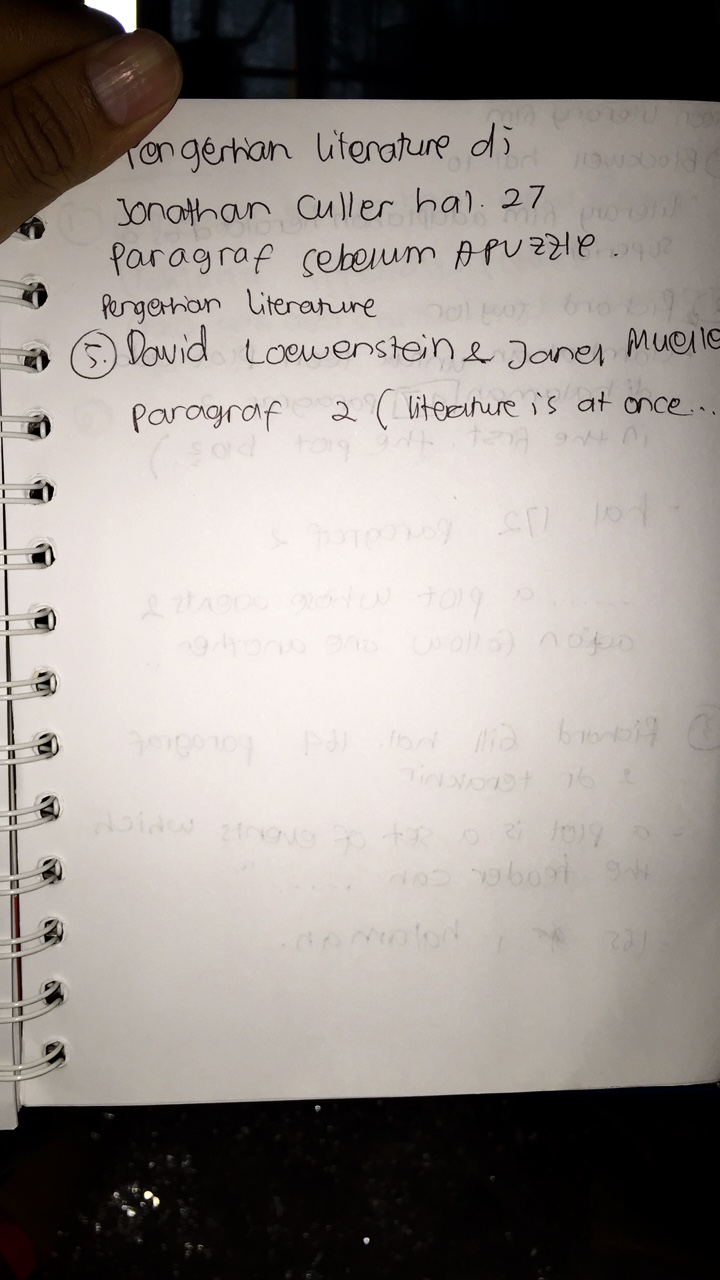 Pengertian literature di
Jonathan Culler hal. 27
Paragraf sebelum A PUZZLE.
Pengertian literature
5. David Loewenstein & Janel Muelle
paragraf 2 (literature is at once...